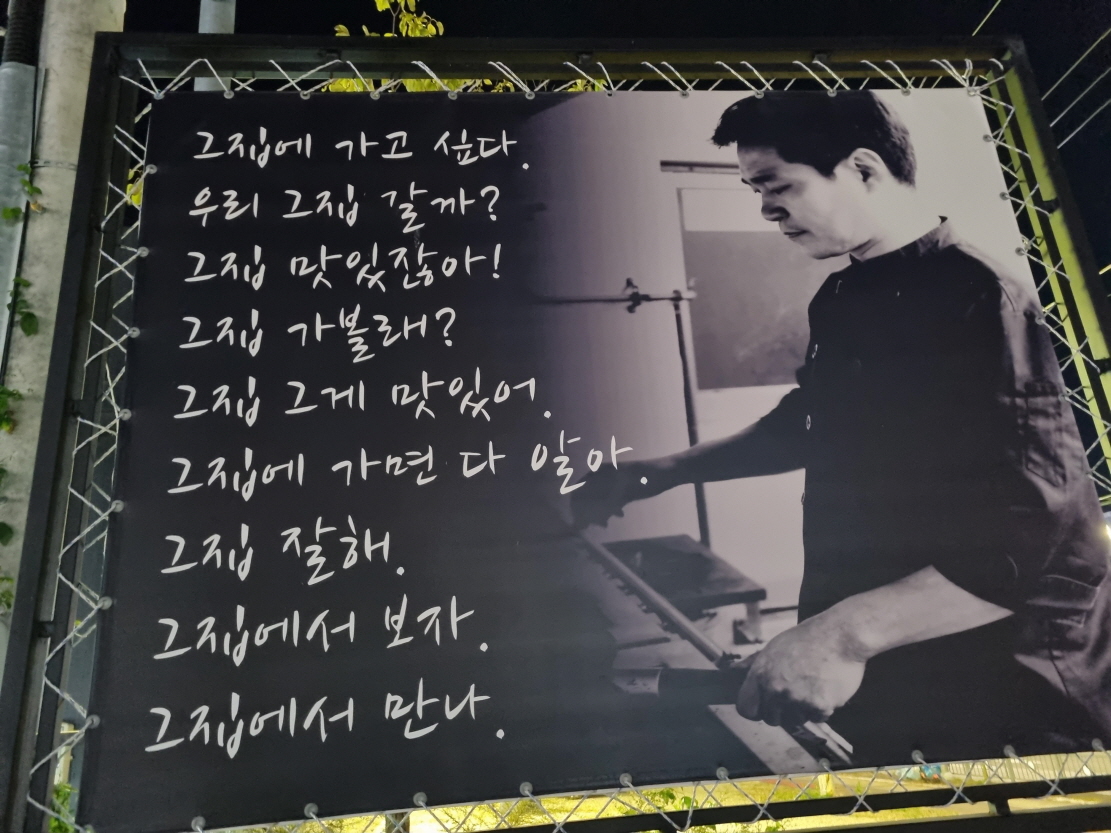 그집에 가고 싶다.
우리 그집 갈까?
그집 맛있잖아!
그집 가볼래?
그집 그게 맛있어.
그집에 가면 다 알아.
그집 잘해.
그집에서 보자.
그집에서 만나.